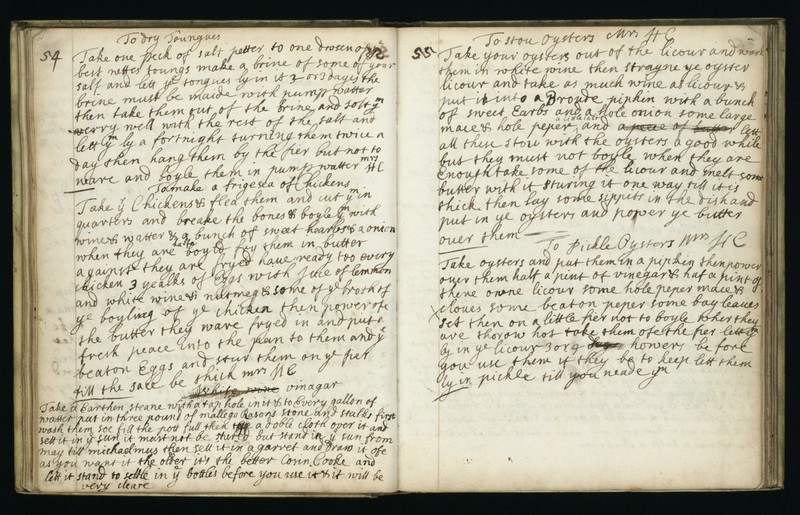 54
To dry Toungues
Take one peck of salt petter to one drosen of ye
best nettes toungs make a brine of some of your
salt and lett ye tongues ly in it 2 or 3 dayes the
brine must be maide with pump watter
then take them out of the brine and solt ym
werry well with the rest of the salt and
lett ym ly a fortnight turning them twice a
day then hang them by the fier but not to
neare and boyle them in pump watter mrs H C
To make a frigesea of Chickens
Take ye Chickens & flea them and cut ym in
quarters and breake the bones & boyle ym with
wine & watter & a bunch of sweet hearbs & a onion
when they are boyld fry them in butter
against they are fryed have ready too every
chicken 3 yealks of Eggs with Juce of lemmon
and white wine & nutmeg & some of ye broth of
ye boyling of ye chicken then power ofe
the butter they ware fryed in and put a
fresh peace into the pan to them and ye
beaton Eggs and stur them on ye fier
till the sase be thick mrs H C
white wine vinagar
Take a Earthen steane with a tap hole in it & to Every gallon of
watter put in three pound of mallego Rasons stone and stalks first
wash them soe fill the pott full then tye a doble cloth over it and
sett it in ye sun it must not be sturd but stand in ye sun from
may till michaelmus then sell it in a garret and draw it ofe
as you want it the older it's the better Conn Cooke and
lett it stand to settle in ye bottles before you use it & it will be
very cleare
55
To stou Oysters Mrs H C
Take your oysters out of the licour and wash
them in white wine then strayne ye oyster
licour and take as much wine as licour &
put it into a Broude pipkin with a bunch
of sweet Earbs and a hole onion some large
mace & hole peper and a peece of butter lett
all these stou with the oysters a good while
but they must not boyle when they are
Enough take some of the licour and melt some
butter with it sturing it one way till it is
thick then lay some sippits in the dish and
put in ye oysters and power ye butter
over them
To Pickle Oysters Mrs H C
Take oysters and put them in a pipkin then power
over them half a pint of vinegar & haf a pint of
there owne licour some hole peper mace &
cloves some beaton peper some bay leaves
set then on a little fier not to boyle when they
are thorow hot take them ofe the fier lett ym
ly in ye licour 3 or 4 howers be fore
you use them if they be to keep lett them
ly in pickle till you neade ym